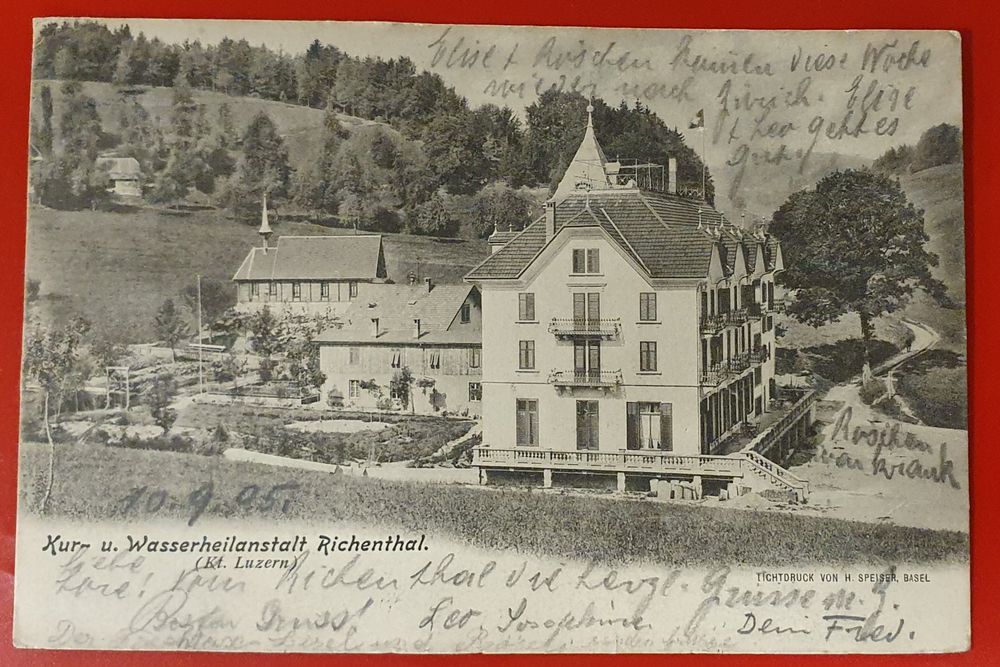 Elise + Röschen kamen diese Woche
wieder nach Zürich. Elise
+ Leo geht es
gut.
Röschen
war krank
10.9.05.
Kur- u. Wasserheilanstalt Richenthal.
(Kt. Luzern)
LICHTDRUCK VON H. SPEISER, BASEL
Liebe
Lore! Von Richenthal die herzl. Grüsse
Besten Gruss! Leo. Josephine. Dein Fried.
Der